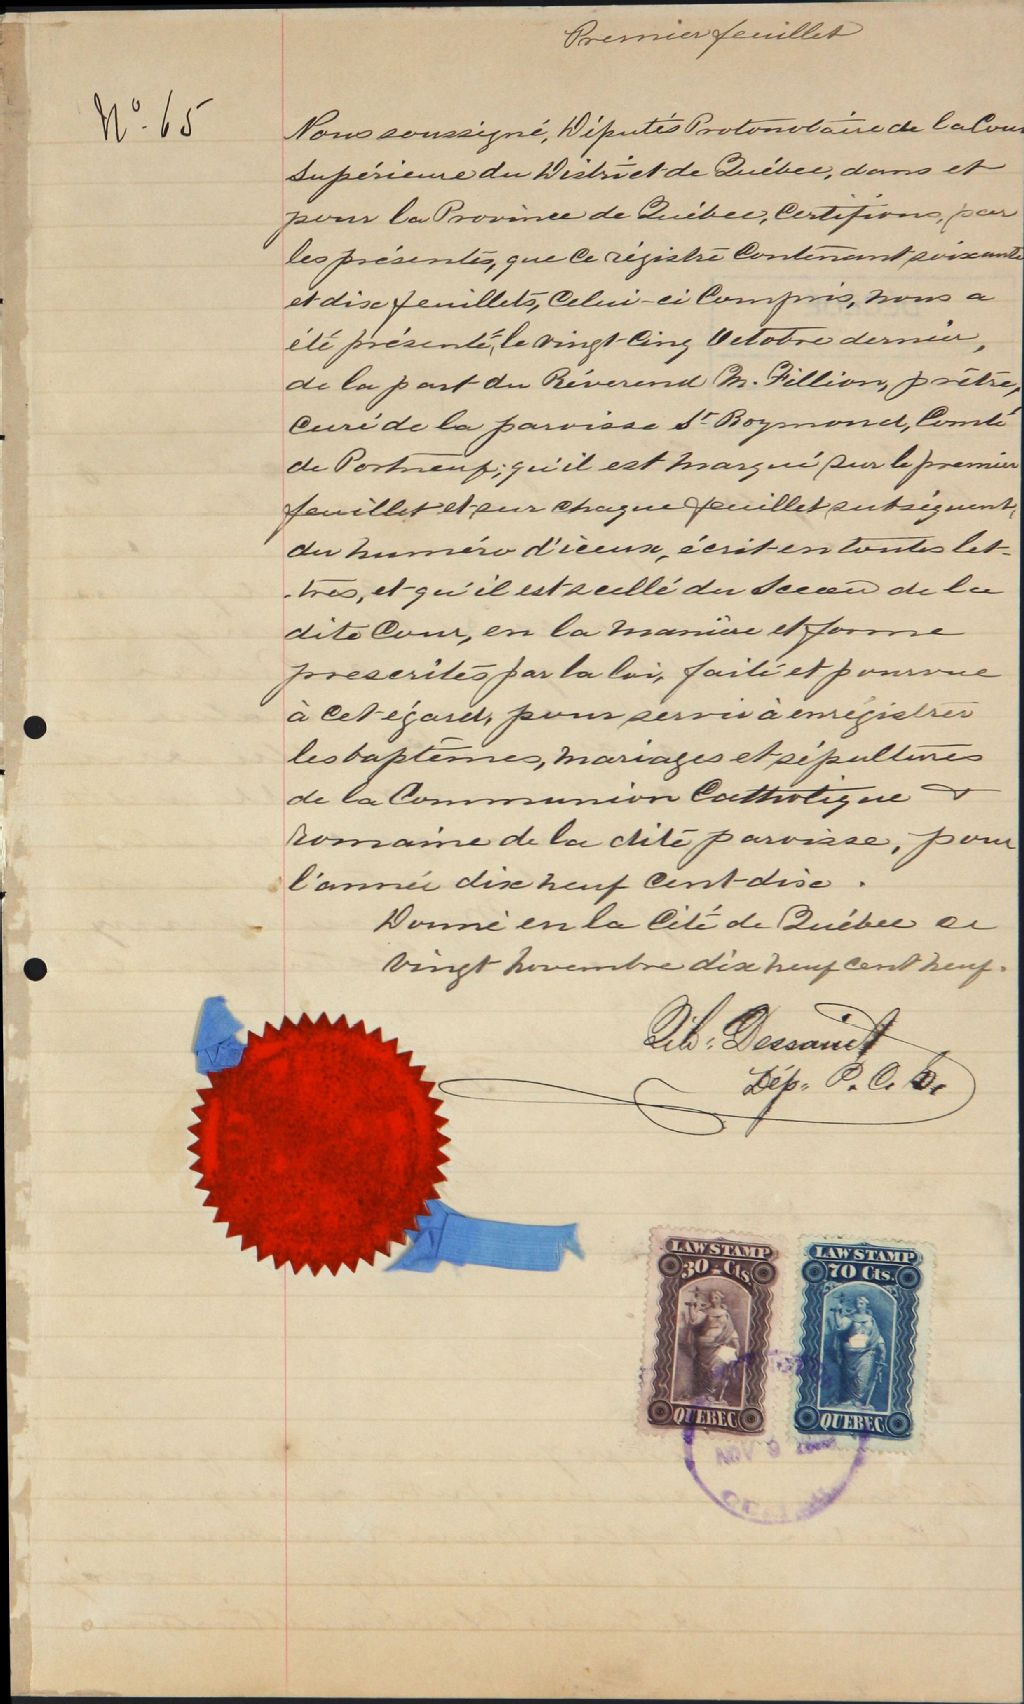 Premier feuillet
No. 65
Nous soussigné, Députés Protonotaire de la Cour
Supérieure du District de Québec, dans et
pour la Province de Québec, Certifions, par
les présentes, que ce régistre Contenant soixante
et dix feuillets, Celui-ci Compris, nous a
été présenté, le vingt Cinq Octobre dernier,
de la part du Révérend M. Fillion, prêtre,
Curé de la paroisse St Raymond, Comté
de Portneuf; qu'il est marqué sur le premier
feuillet et sur chaque feuillet subséquent,
du numéro d'iceux, écrit en toutes let-
-tres, et qu'il est scellé du Sceau de la
dite Cour, en la manière et forme
prescrites par la loi, faite et pourvue
à cet égard, pour servir à enrégistrer
les baptêmes, mariages et sépultures
de la Communion Catholique &
romaine de la dite paroisse, pour
l'année dix neuf Cent dix.
Donné en la Cité de Québec ce
vingt novembre dix neuf cent neuf.
Dessaint
Dép. P. C. S.
LAW STAMP
30 - Cts.
QUEBEC
LAW STAMP
70 Cts.
QUEBEC
NOV 9